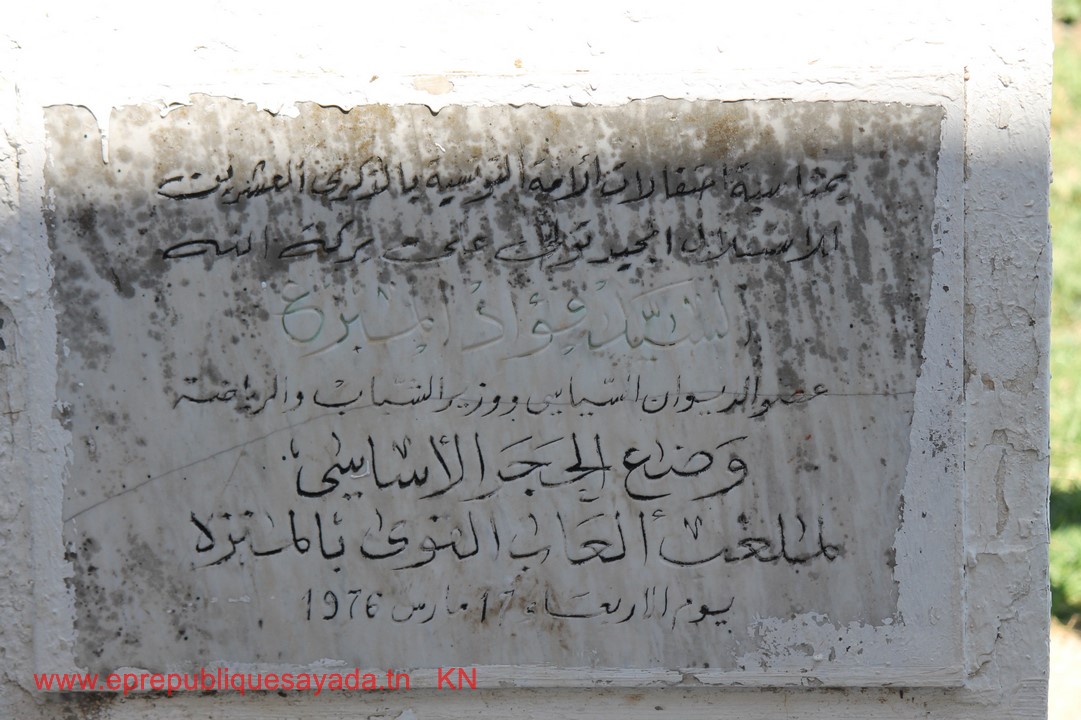 بمناسبة احتفالات الأمة التونسية بالذكرى العشرين
للاستقلال المجيد تولى على بركة الله
السيد فؤاد المبزع
عضو الديوان السياسي ووزير الشباب والرياضة
وضع الحجر الأساسي
لملعب ألعاب القوى بالمنزه
يوم الاربعاء 17 مارس 1976
www.eprepubliquesayada.tn KN